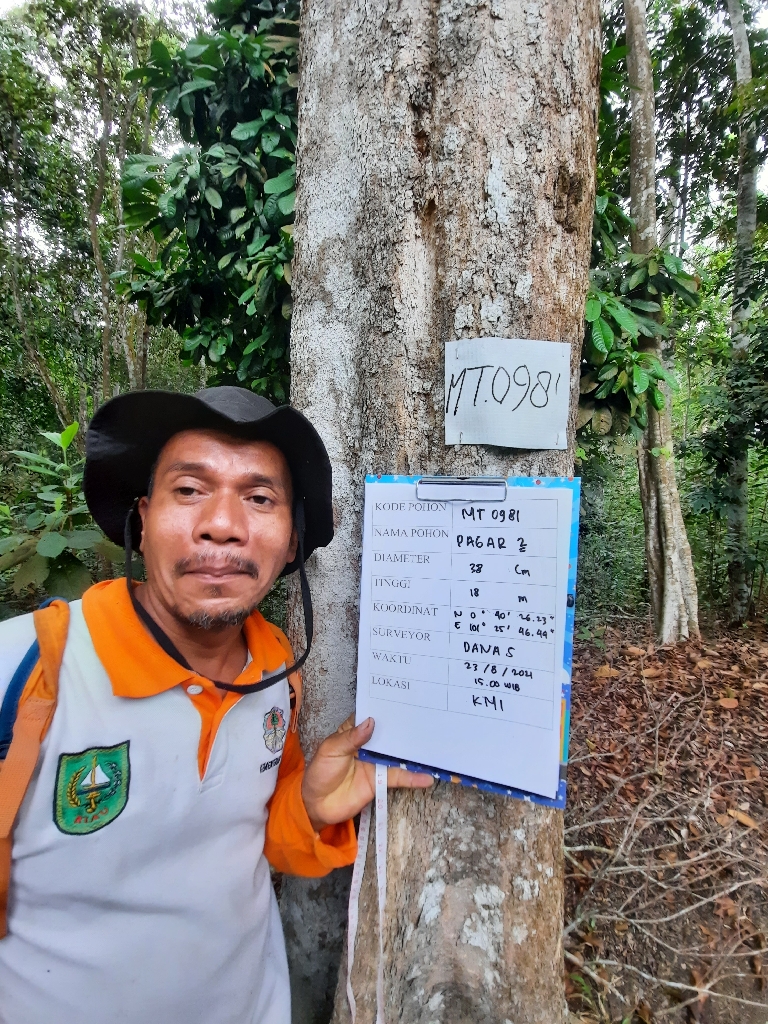 MT.0981
KODE POHON MT 0981
NAMA POHON PAGAR 2
DIAMETER 38 Cm
TINGGI 18 m
KOORDINAT N 0° 40' 26.23"
E 101° 25' 46.44"
SURVEYOR DANA S
WAKTU 23/8/2021
15.00 WIB
LOKASI KMI
RIAU